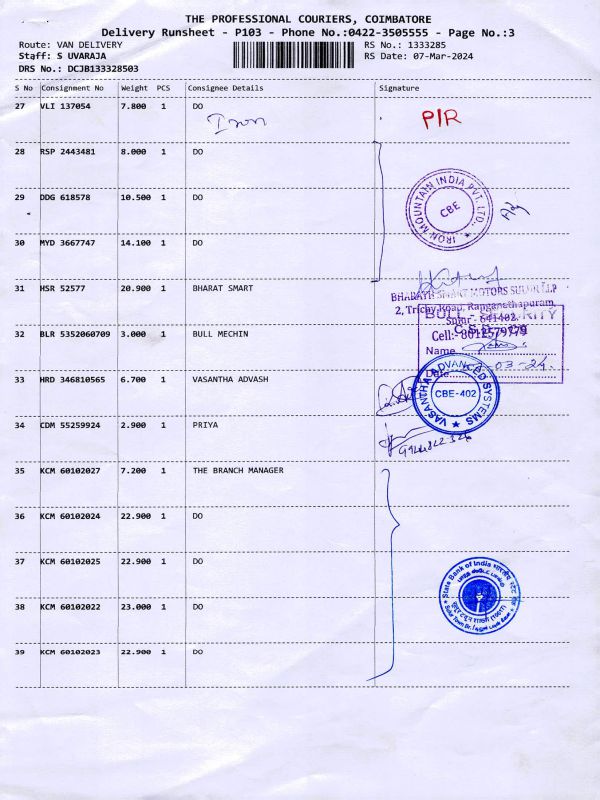 THE PROFESSIONAL COURIERS, COIMBATORE
Delivery Runsheet - P103 - Phone No.:0422-3505555 - Page No.:3
Route: VAN DELIVERY RS No.: 1333285
Staff: S UVARAJA RS Date: 07-Mar-2024
DRS No.: DCJB133328503
S No Consignment No Weight PCS Consignee Details Signature
27 VLI 137054 7.800 1 DO
Iron P/R
28 RSP 2443481 8.000 1 DO
IRON MOUNTAIN INDIA PVT. LTD.,
CBE
29 DDG 618578 10.500 1 DO
30 MYD 3667747 14.100 1 DO
31 HSR 52577 20.900 1 BHARAT SMART
BHARATH SMART MOTORS SULUR LLP
2, Trichy Road, Ranganathapuram,
Sulur - 641402.
Cell:- 8012579779
32 BLR 5352060709 3.000 1 BULL MECHIN
BULL - SECURITY
Name
Date 03-24
33 HRD 346810565 6.700 1 VASANTHA ADVASH
VASANTHA ADVANCED SYSTEMS
CBE-402
34 CDM 55259924 2.900 1 PRIYA
35 KCM 60102027 7.200 1 THE BRANCH MANAGER
36 KCM 60102024 22.900 1 DO
37 KCM 60102025 22.900 1 DO
State Bank of India
38 KCM 60102022 23.000 1 DO
39 KCM 60102023 22.900 1 DO